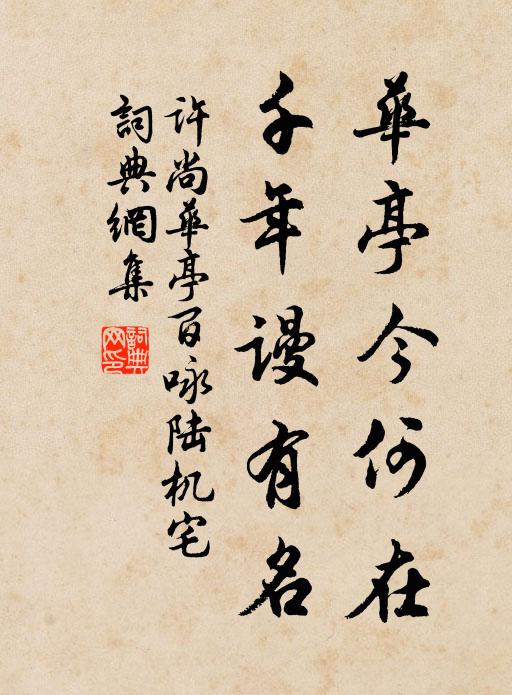 華亭今何在
千年謾有名
许尚華亭百咏陆机宅
詞典網集
詞典網印